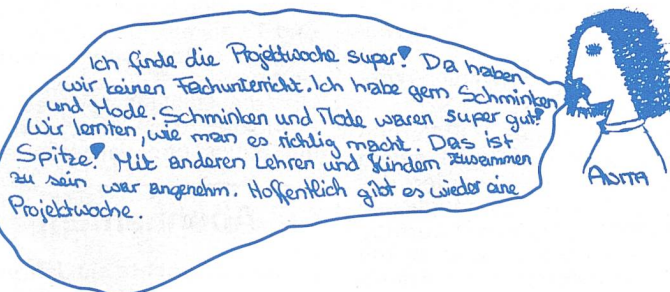 Ich finde die Projektwoche super! Da haben
wir keinen Fachunterricht. Ich habe gern Schminken
und Mode. Schminken und Mode waren super gut!
Wir lernten, wie man es richtig macht. Das ist
Spitze! Mit anderen Lehren und Kindern zusammen
zu sein war angenehm. Hoffentlich gibt es wieder eine
Projektwoche.
ANITA